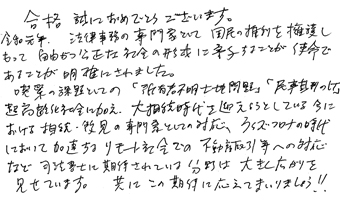 合格 誠におめでとうございます。
令和元年、法律事務の専門家として 国民の権利を擁護し
もって 自由かつ公正な社会の形成に寄与することが 使命で
あることが明確にされました。
喫緊の課題としての「所有者不明土地問題」「民事裁判のIT化」
超高齢化社会に加え、大相続時代を迎えようとしている今に
おける 相続・後見の専門家としての対応、ウィズコロナの時代
において加速する リモート社会での 不動産取引等への対応
など 司法書士に期待されている 分野は 大きな広がりを
見せています。 共に この期待に応えてまいりましょう!!